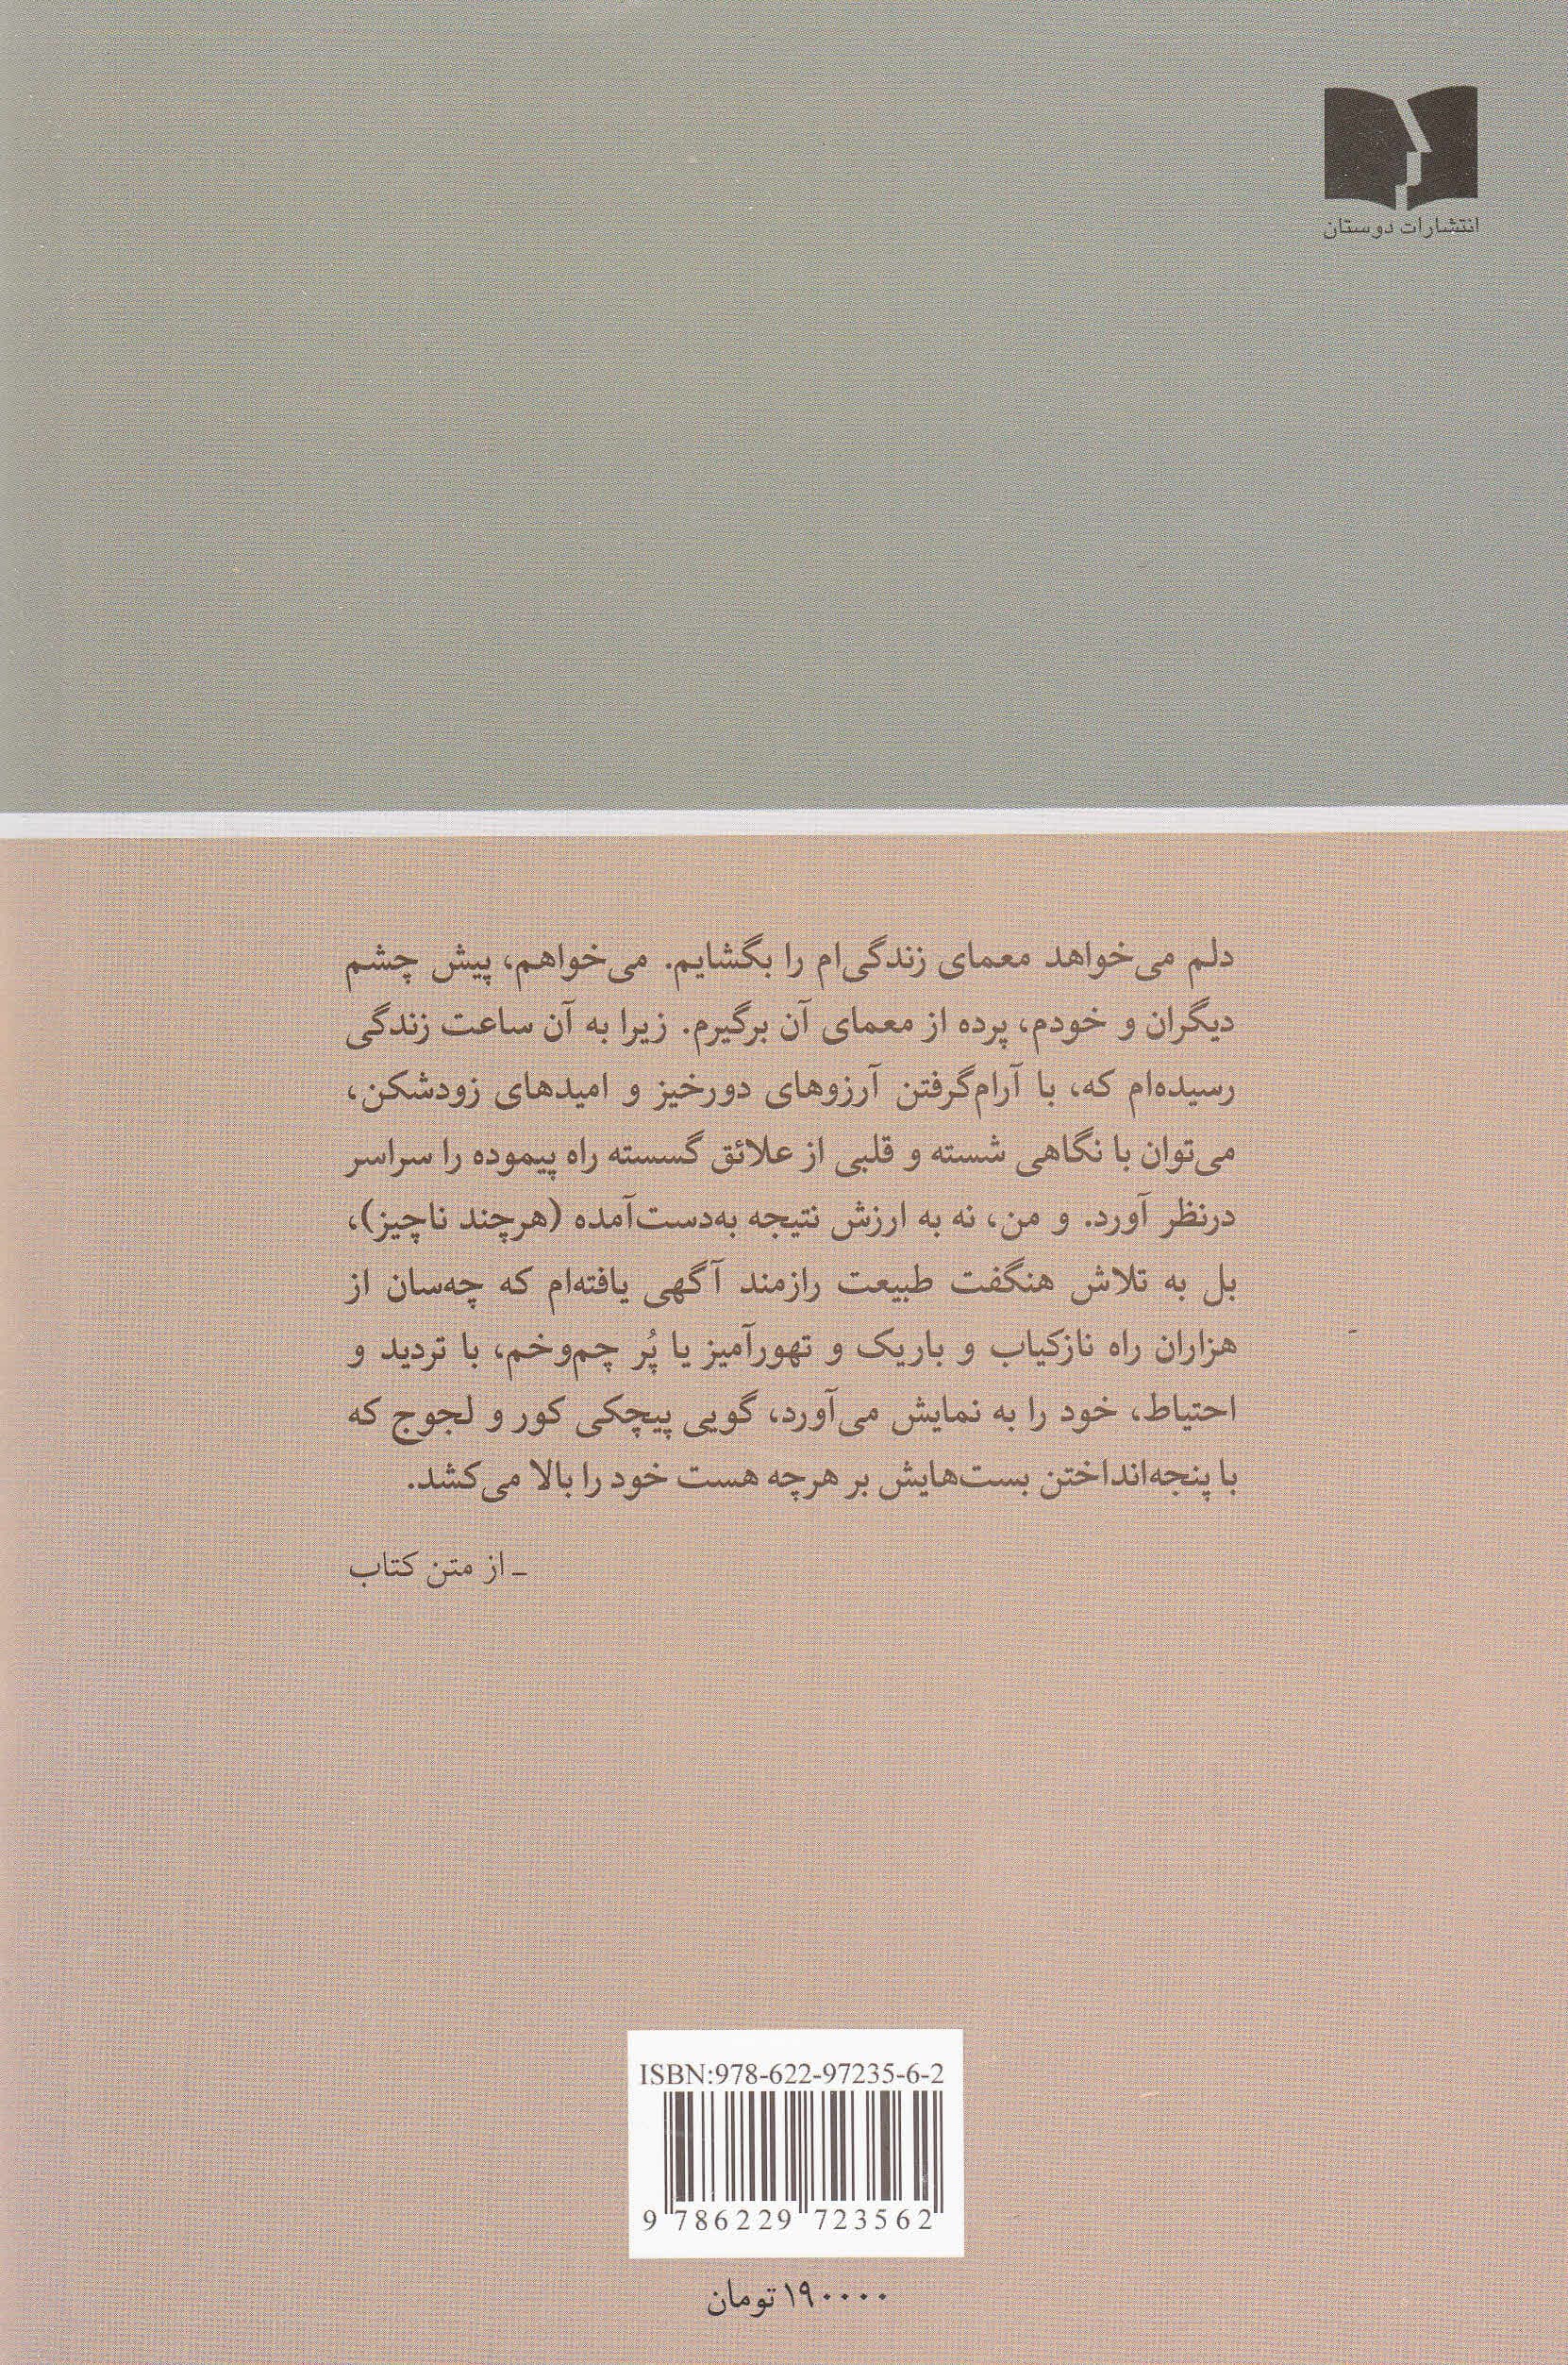 انتشارات دوستان
دلم می‌خواهد معمای زندگی‌ام را بگشایم. می‌خواهم، پیش چشم
دیگران و خودم، پرده از معمای آن برگیرم. زیرا به آن ساعت زندگی
رسیده‌ام که، با آرام‌گرفتن آرزوهای دورخیز و امیدهای زودشکن،
می‌توان با نگاهی شسته و قلبی از علائق گسسته راه پیموده را سراسر
درنظر آورد. و من، نه به ارزش نتیجه به‌دست‌آمده (هرچند ناچیز)،
بل به تلاش هنگفت طبیعت رازمند آگهی یافته‌ام که چه‌سان از
هزاران راه نازکیاب و باریک و تهورآمیز یا پُر چم‌وخم، با تردید و
احتیاط، خود را به نمایش می‌آورد، گویی پیچکی کور و لجوج که
با پنجه‌انداختن بست‌هایش بر هرچه هست خود را بالا می‌کشد.
ـ از متن کتاب
ISBN:978-622-97235-6-2
9 786229 723562
۱۹۰۰۰۰ تومان